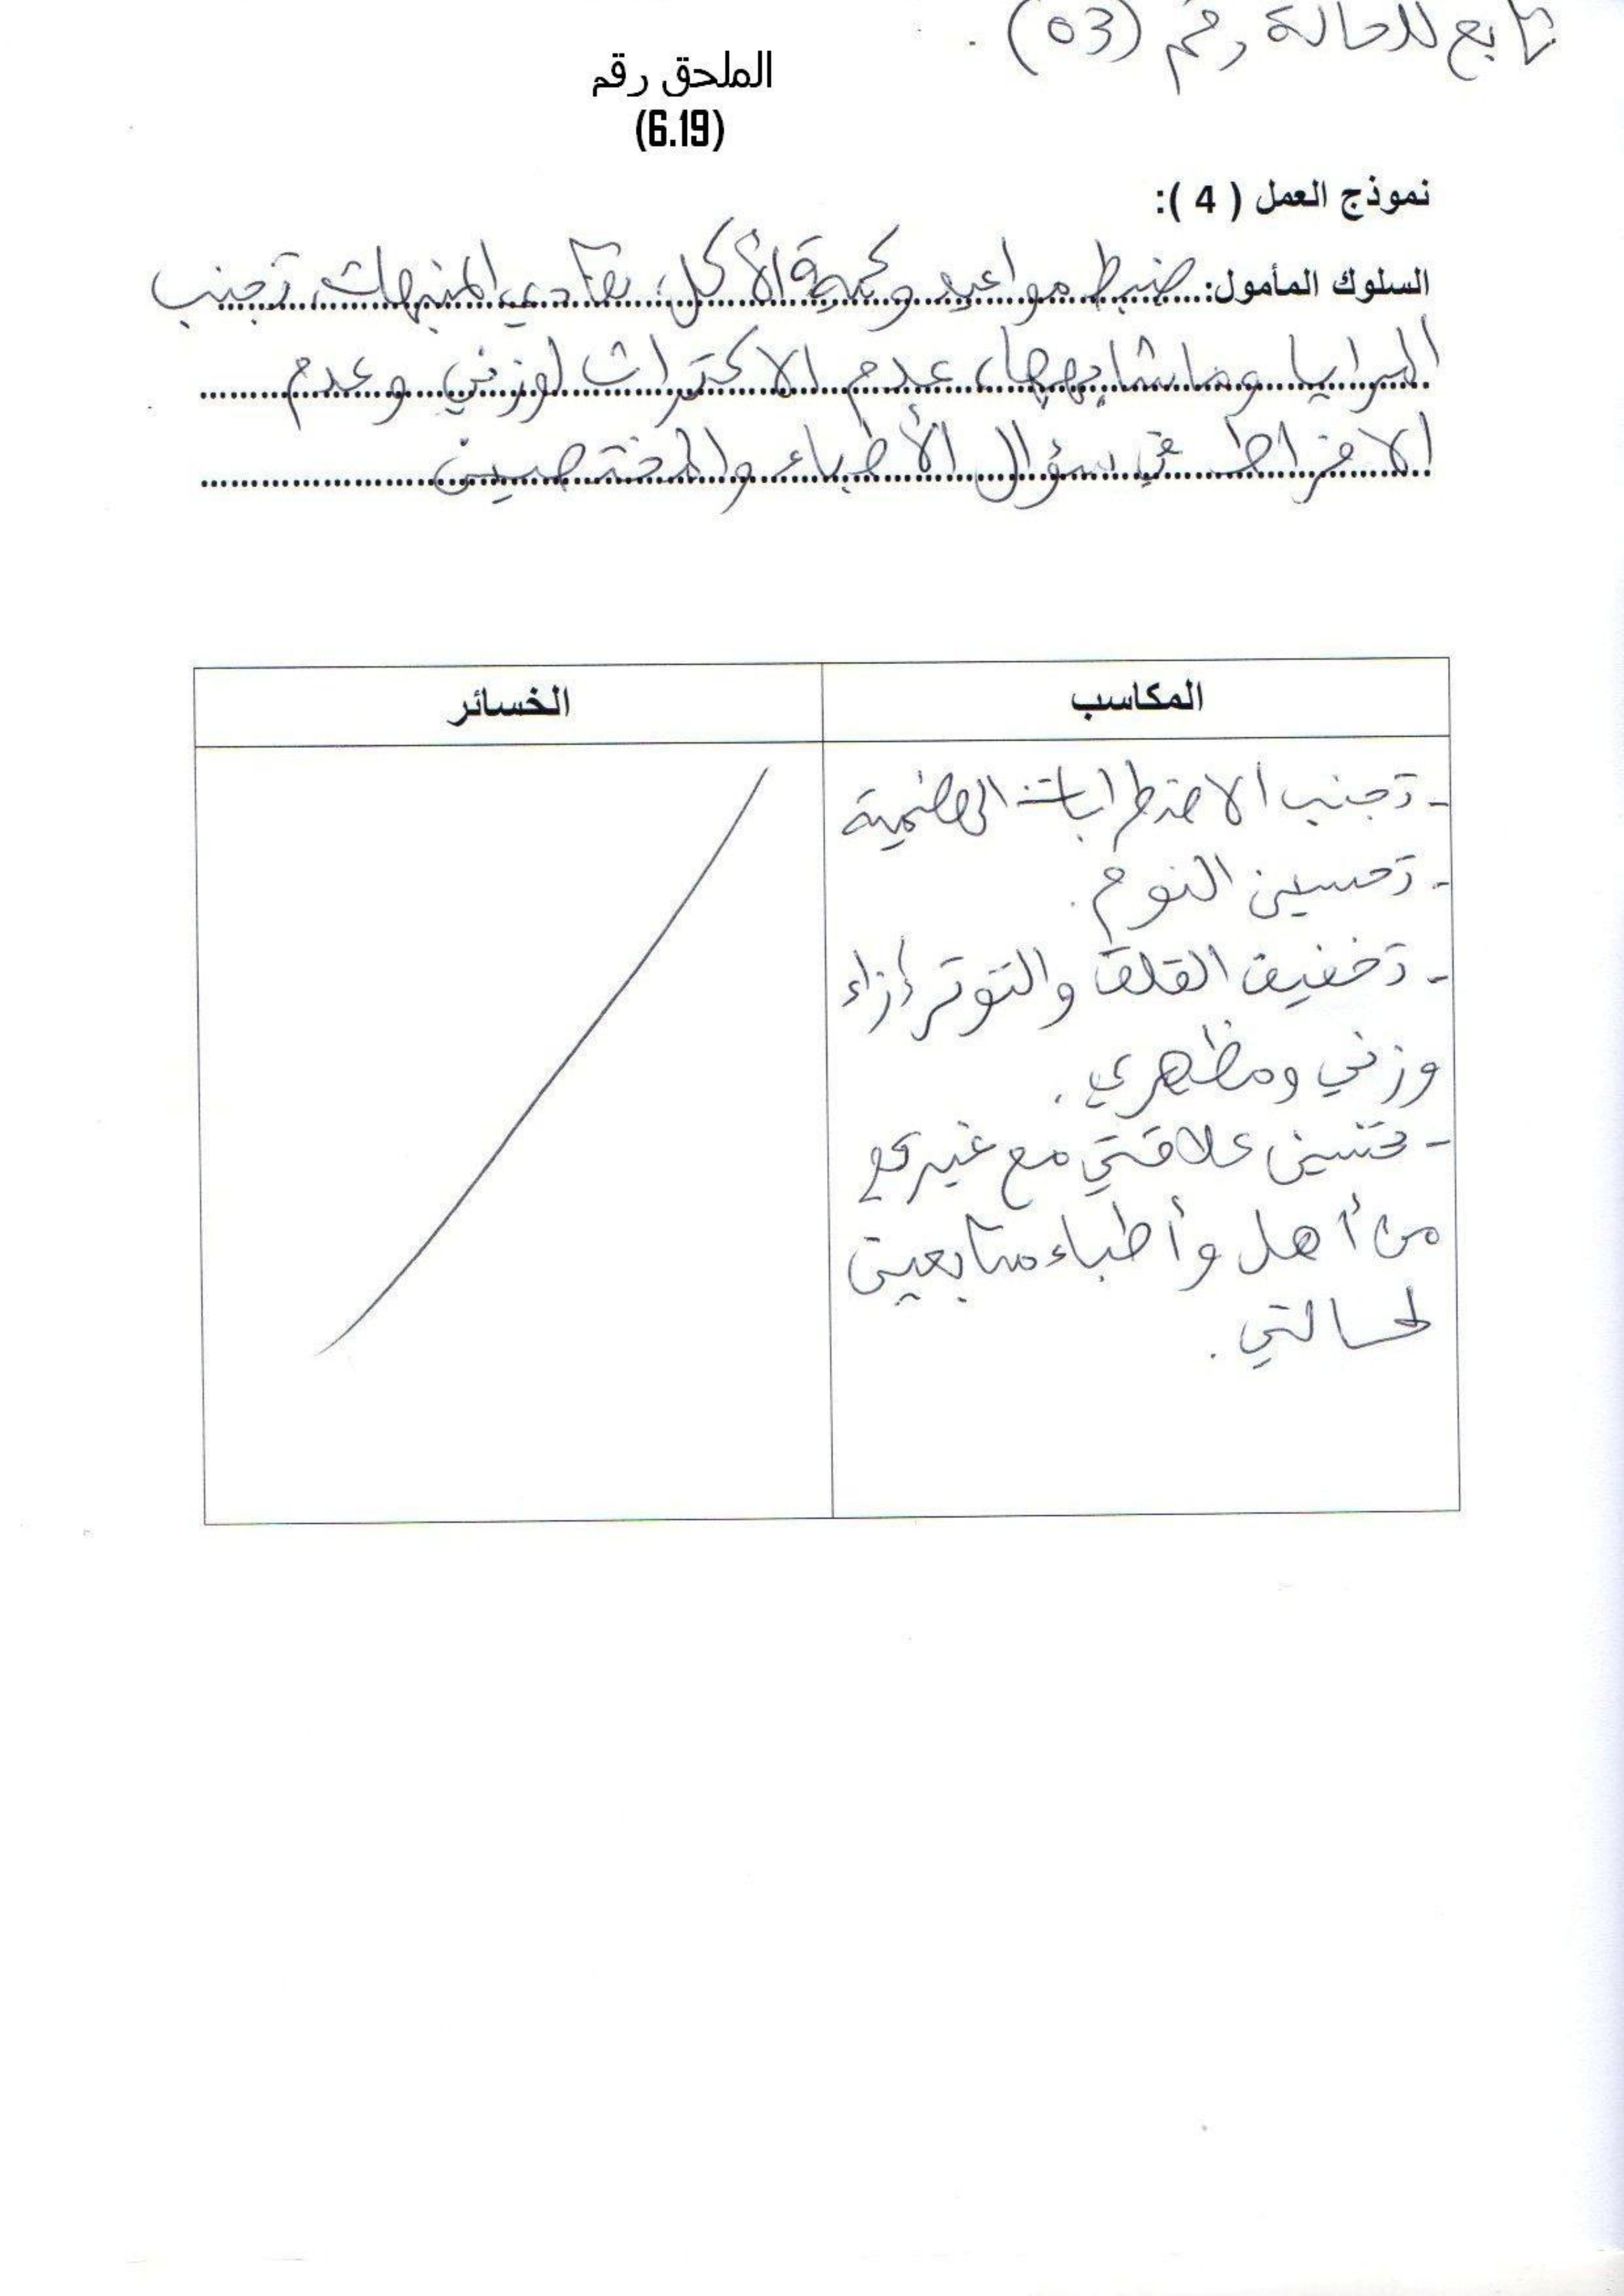 تابع للحالة رقم (03).
الملحق رقم
(6.19)
نموذج العمل ( 4 ):
السلوك المأمول: ضبط مواعيد وكمية الأكل، تفادي المنبهات، تجنب
المرايا وماشابهها، عدم الاكتراث لوزني وعدم
الافراط في سؤال الأطباء والمختصين
المكاسب
الخسائر
- تجنب الاضطرابات الهضمية
- تحسين النوم.
- تخفيف القلق والتوتر إزاء
وزني ومظهري.
- تحسين علاقتي مع غيري
من أهل وأطباء متابعين
لحالتي.